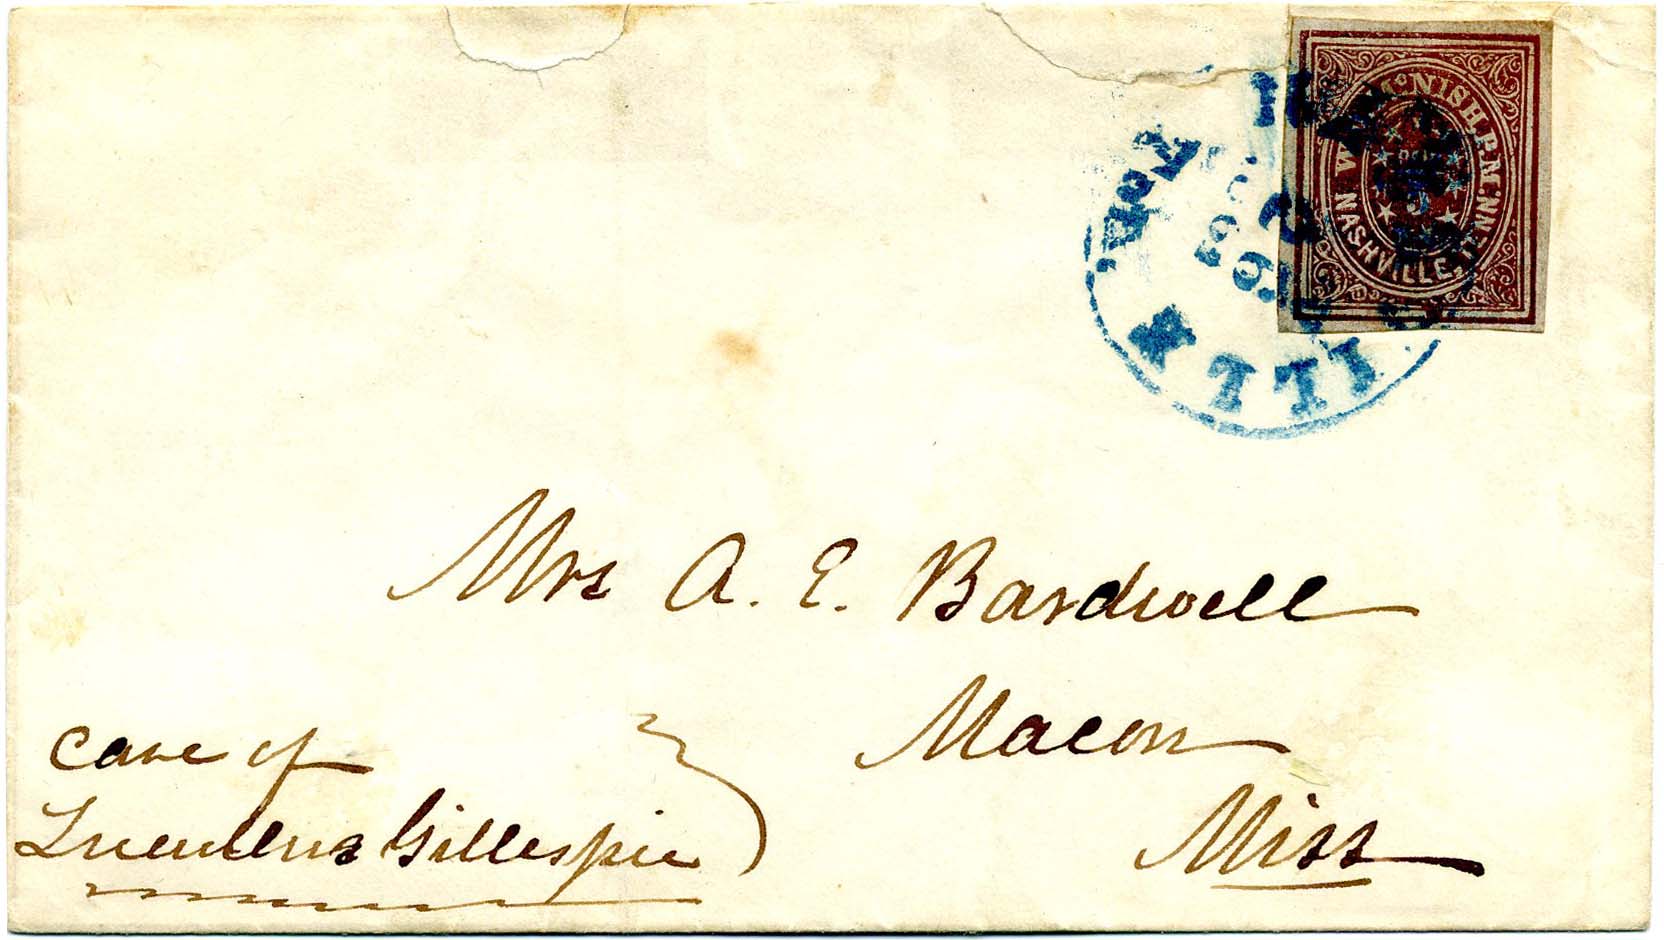 W. D. McNISH. P.M.
NASHVILLE, TENN.
5
Ten.
1861
Mrs A. E. Bardwell
Macon
Miss
Care of
Lucullus Gillespie